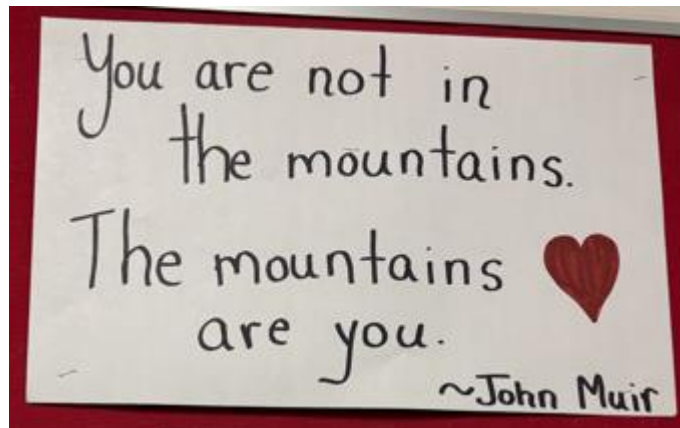 You are not in
the mountains.
The mountains
are you.
~John Muir